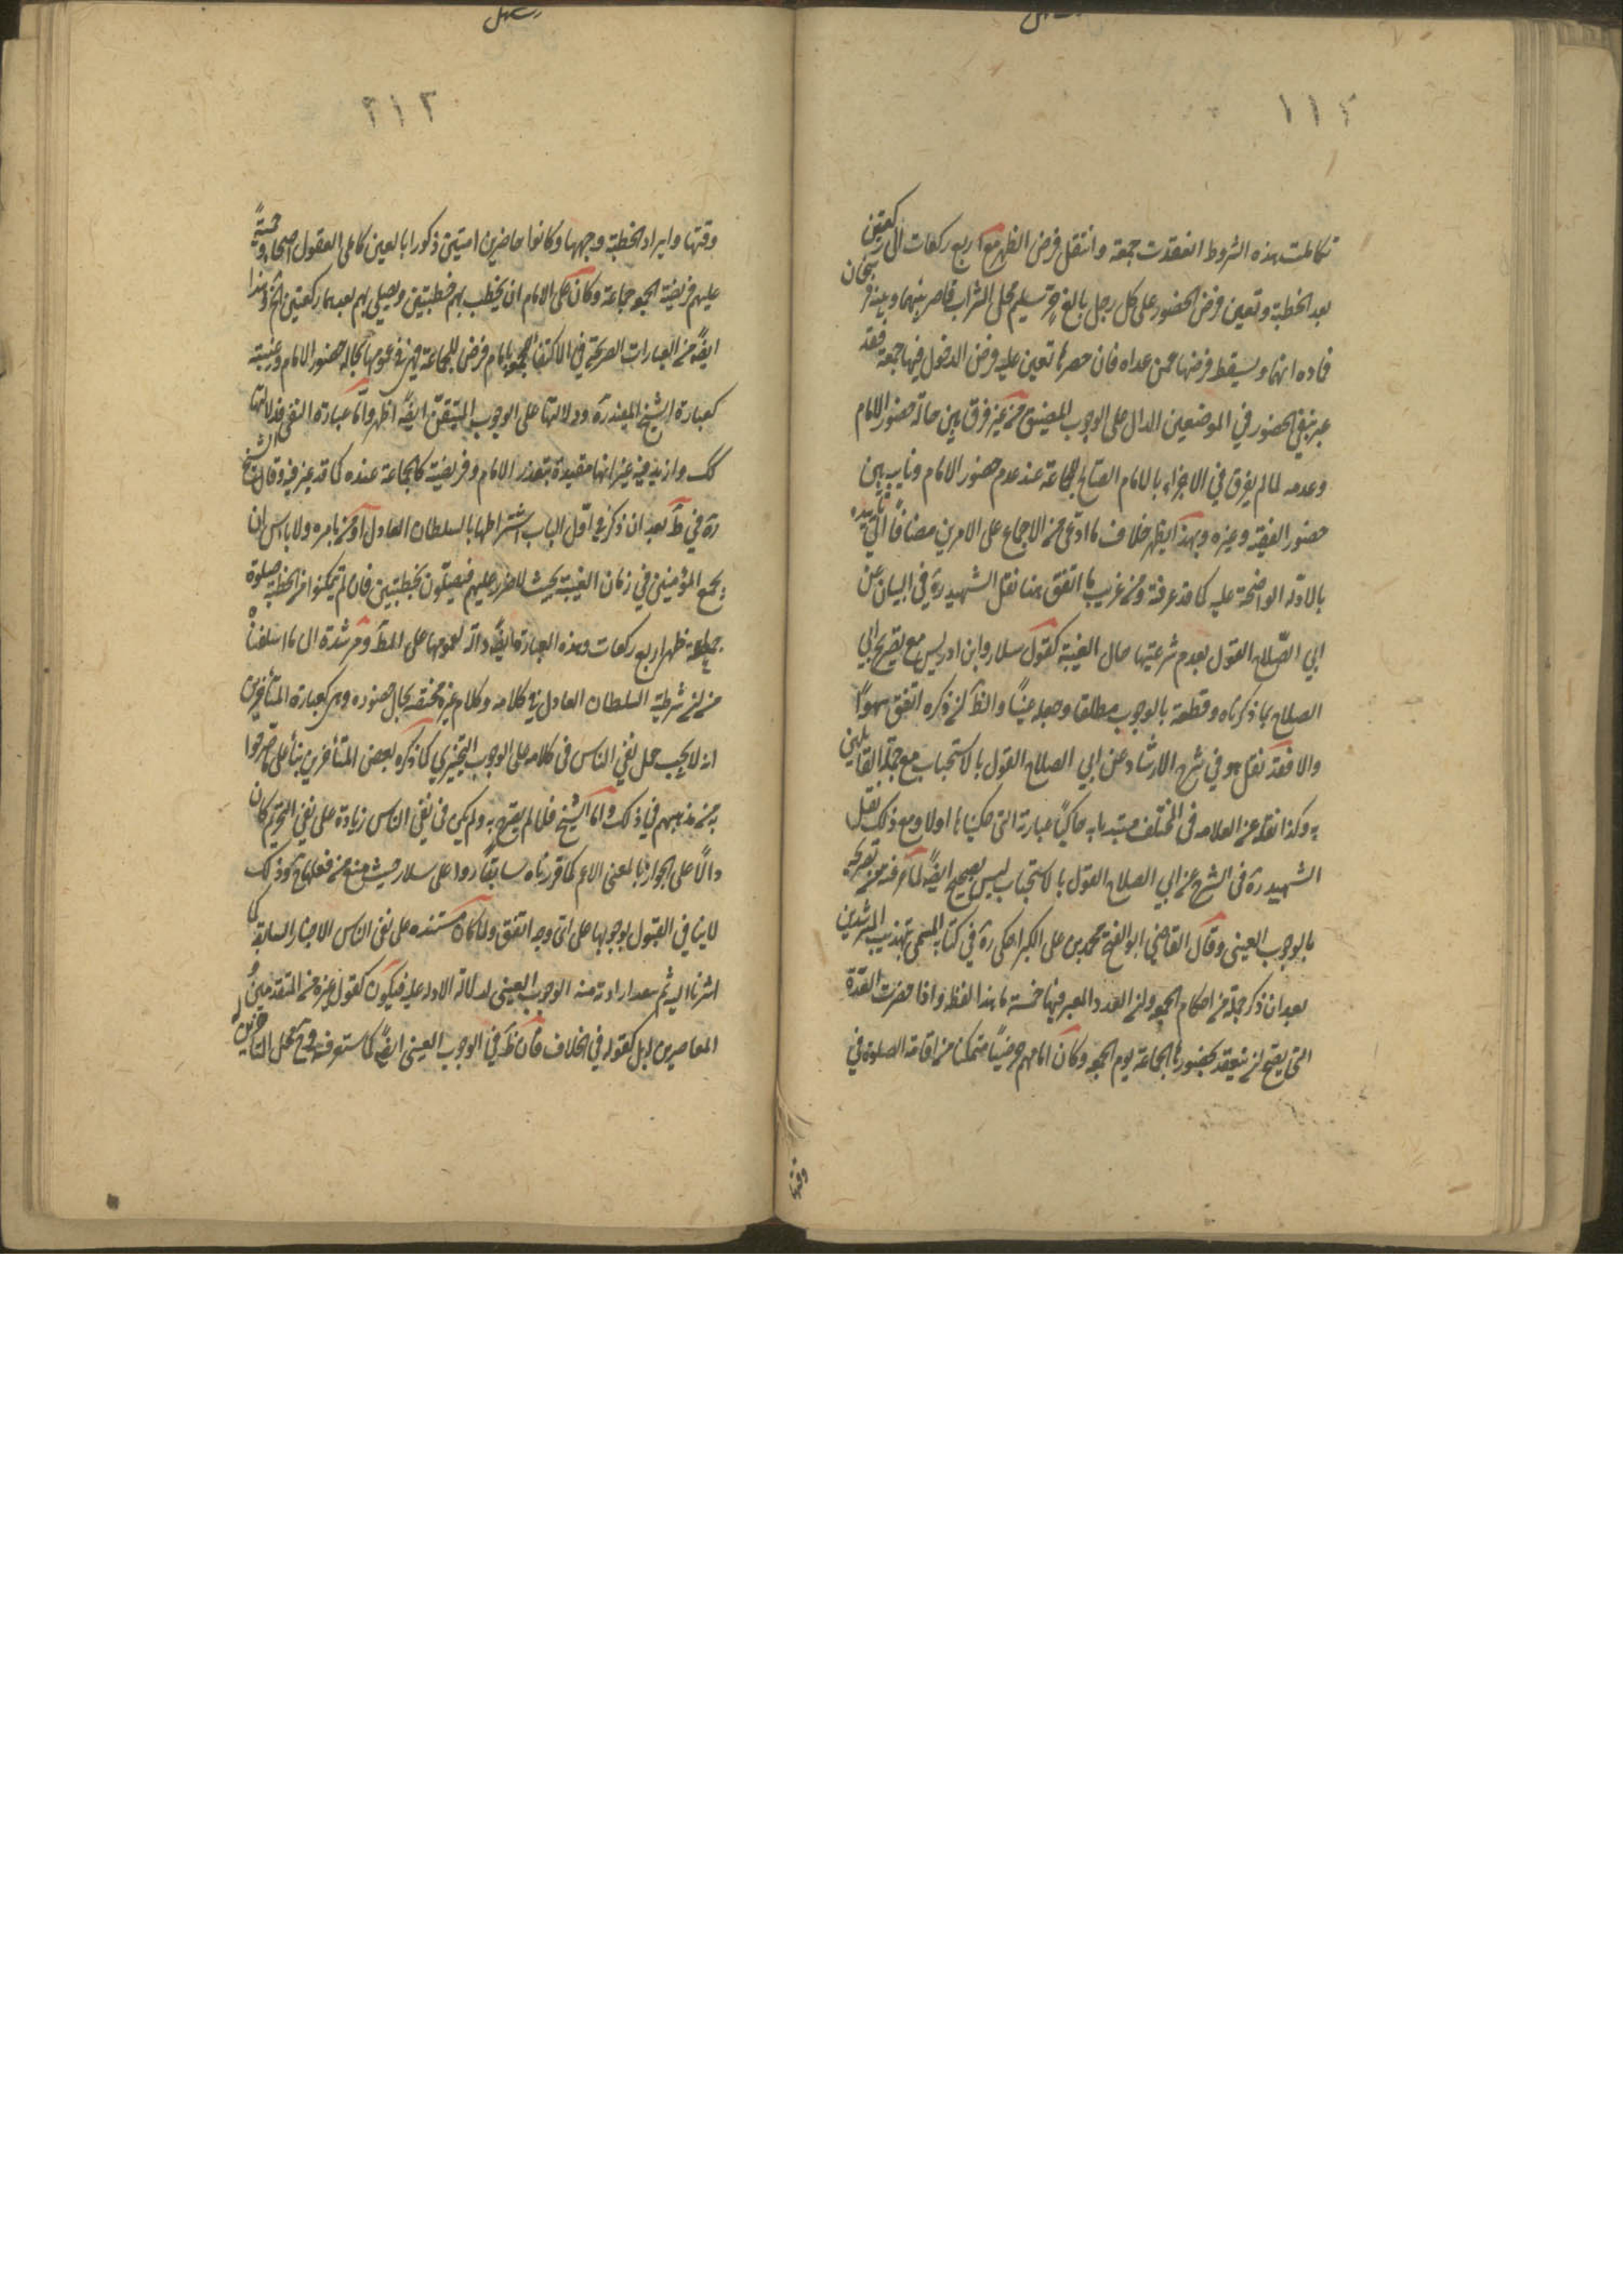 ١١٢
تكاملت هذه الشروط انعقدت جمعة وانتقل فرض الظهر من اربع ركعات الى ركعتين
بعد الخطبة وتعين فرض الحضور على كل رجل بالغ حر سليم مخلى السرب قاصر بينهما وبينه فرسخان
فما دونهما ويسقط فرضها عمن عداه فان حضرها تعين عليه فرض الدخول فيها جمعة فقد
عبر بنفي الحضور في الموضعين الدال على الوجوب المضيق من غير فرق بين حالة حضور الامام
وعدمه لما لم يفرق في الاجزاء بالامام الصالح للجماعة عند عدم حضور الامام ونايبه بين
حضور الفقيه وغيره وبهذا يظهر خلاف ما ادعى من الاجماع على الامرين مضافا الى تأييده
بالادلة الواضحة عليه كما قد عرفته ومن غريب ما اتفق هنا نقل الشهيد ره في البيان عن
ابي الصلاح القول بعدم شرعيتها حال الغيبة كقول سلار وابن ادريس مع تصريح ابي
الصلاح بما ذكرناه وقطعه بالوجوب مطلقا وجعله عينيا والظ ان ذكره اتفق سهوا
والا فقد نقل هو في شرح الارشاد عن ابي الصلاح القول بالاستحباب مع جملة القايلين
به وكذا نقله عنه العلامة في المختلف مبتديا به حاكيا عبارته التي حكيناها اولا ومع ذلك نقل
الشهيد ره في الشرح عن ابي الصلاح القول بالاستحباب ليس بصحيح ايضا لما عرفته من تصريحه
بالوجوب العيني وقال القاضي ابو الفتح محمد بن على الكراجكى ره في كتابه المسمى بتهذيب المسترشدين
بعد ان ذكر جملة من احكام الجمعة وان العدد المعتبر فيها خمسة ما هذا لفظه واذا حضرت العدة
التي يصح ان ينعقد بحضورها الجماعة يوم الجمعة وكان امامهم مرضيا متمكنا من اقامة الصلوة في
وقتها
٢١٢
وقتها وايراد الخطبة وجهها وكانوا حاضرين امنين ذكورا بالغين كاملى العقول اصحاء وجبت
عليهم فريضة الجمعة جماعة وكان على الامام ان يخطب بهم خطبتين ويصلى بهم بعدهما ركعتين الخ وهذا
ايضا من العبارات الصريحة في الاكتفا للجمعة بامام مرضى للجماعة فهى في عمومها لحالة حضور الامام وغيبته
كعبارة الشيخ المفيد ره ودلالتها على الوجوب المتيقن ايضا اظهر واما عبارة التقى فدلالتها
كك وازيد فيه غير انها مقيدة بتعذر الامام وفريضته كالجماعة عنده كما قد عرفته وقال الشيخ
ره في ط بعد ان ذكر في اول الباب اشتراطها بالسلطان العادل او من يامره ولا باس ان
يجمع المؤمنين في زمان الغيبة بحيث لا ضرر عليهم فيصلون بخطبتين فان لم يتمكنوا من الخطبة صلوة
جماعة ظهرا اربع ركعات وهذه العبارة ايضا دالة بعمومها على المط ومرشدة الى ما اسلفناه
من ان شرطية السلطان العادل في كلامه وكلام غيره مختصة بحال حضوره وهى كعبارة المتأخرين
انه لا يجب حمل نفي الباس في كلامه على الوجوب التخييري كما ذكره بعض المتأخرين بناء على ما صرحوا
به من مذهبهم في ذلك واما الشيخ فلما لم يصرح به ولم يكن في نفي الباس زيادة على نفى التحريم كان
دالا على الجواز بالمعنى الاعم كما قررناه سابقا ردا على سلار حيث منع من فعلها ح وذلك
لا ينافي القبول بوجوبها على اى وجه اتفق ولما كان مستنده على نفى الباس الاخبار السابقة كما
اشرنا اليه ثم بعد ارادته منه الوجوب العيني لدلالة الادلة عليه فيكون كقول غيره من المتقدمين و
المعاصرين له بل كقوله في الخلاف فان ظ في الوجوب العيني ايضا كما ستعرفه وح حمل المتأخرين له